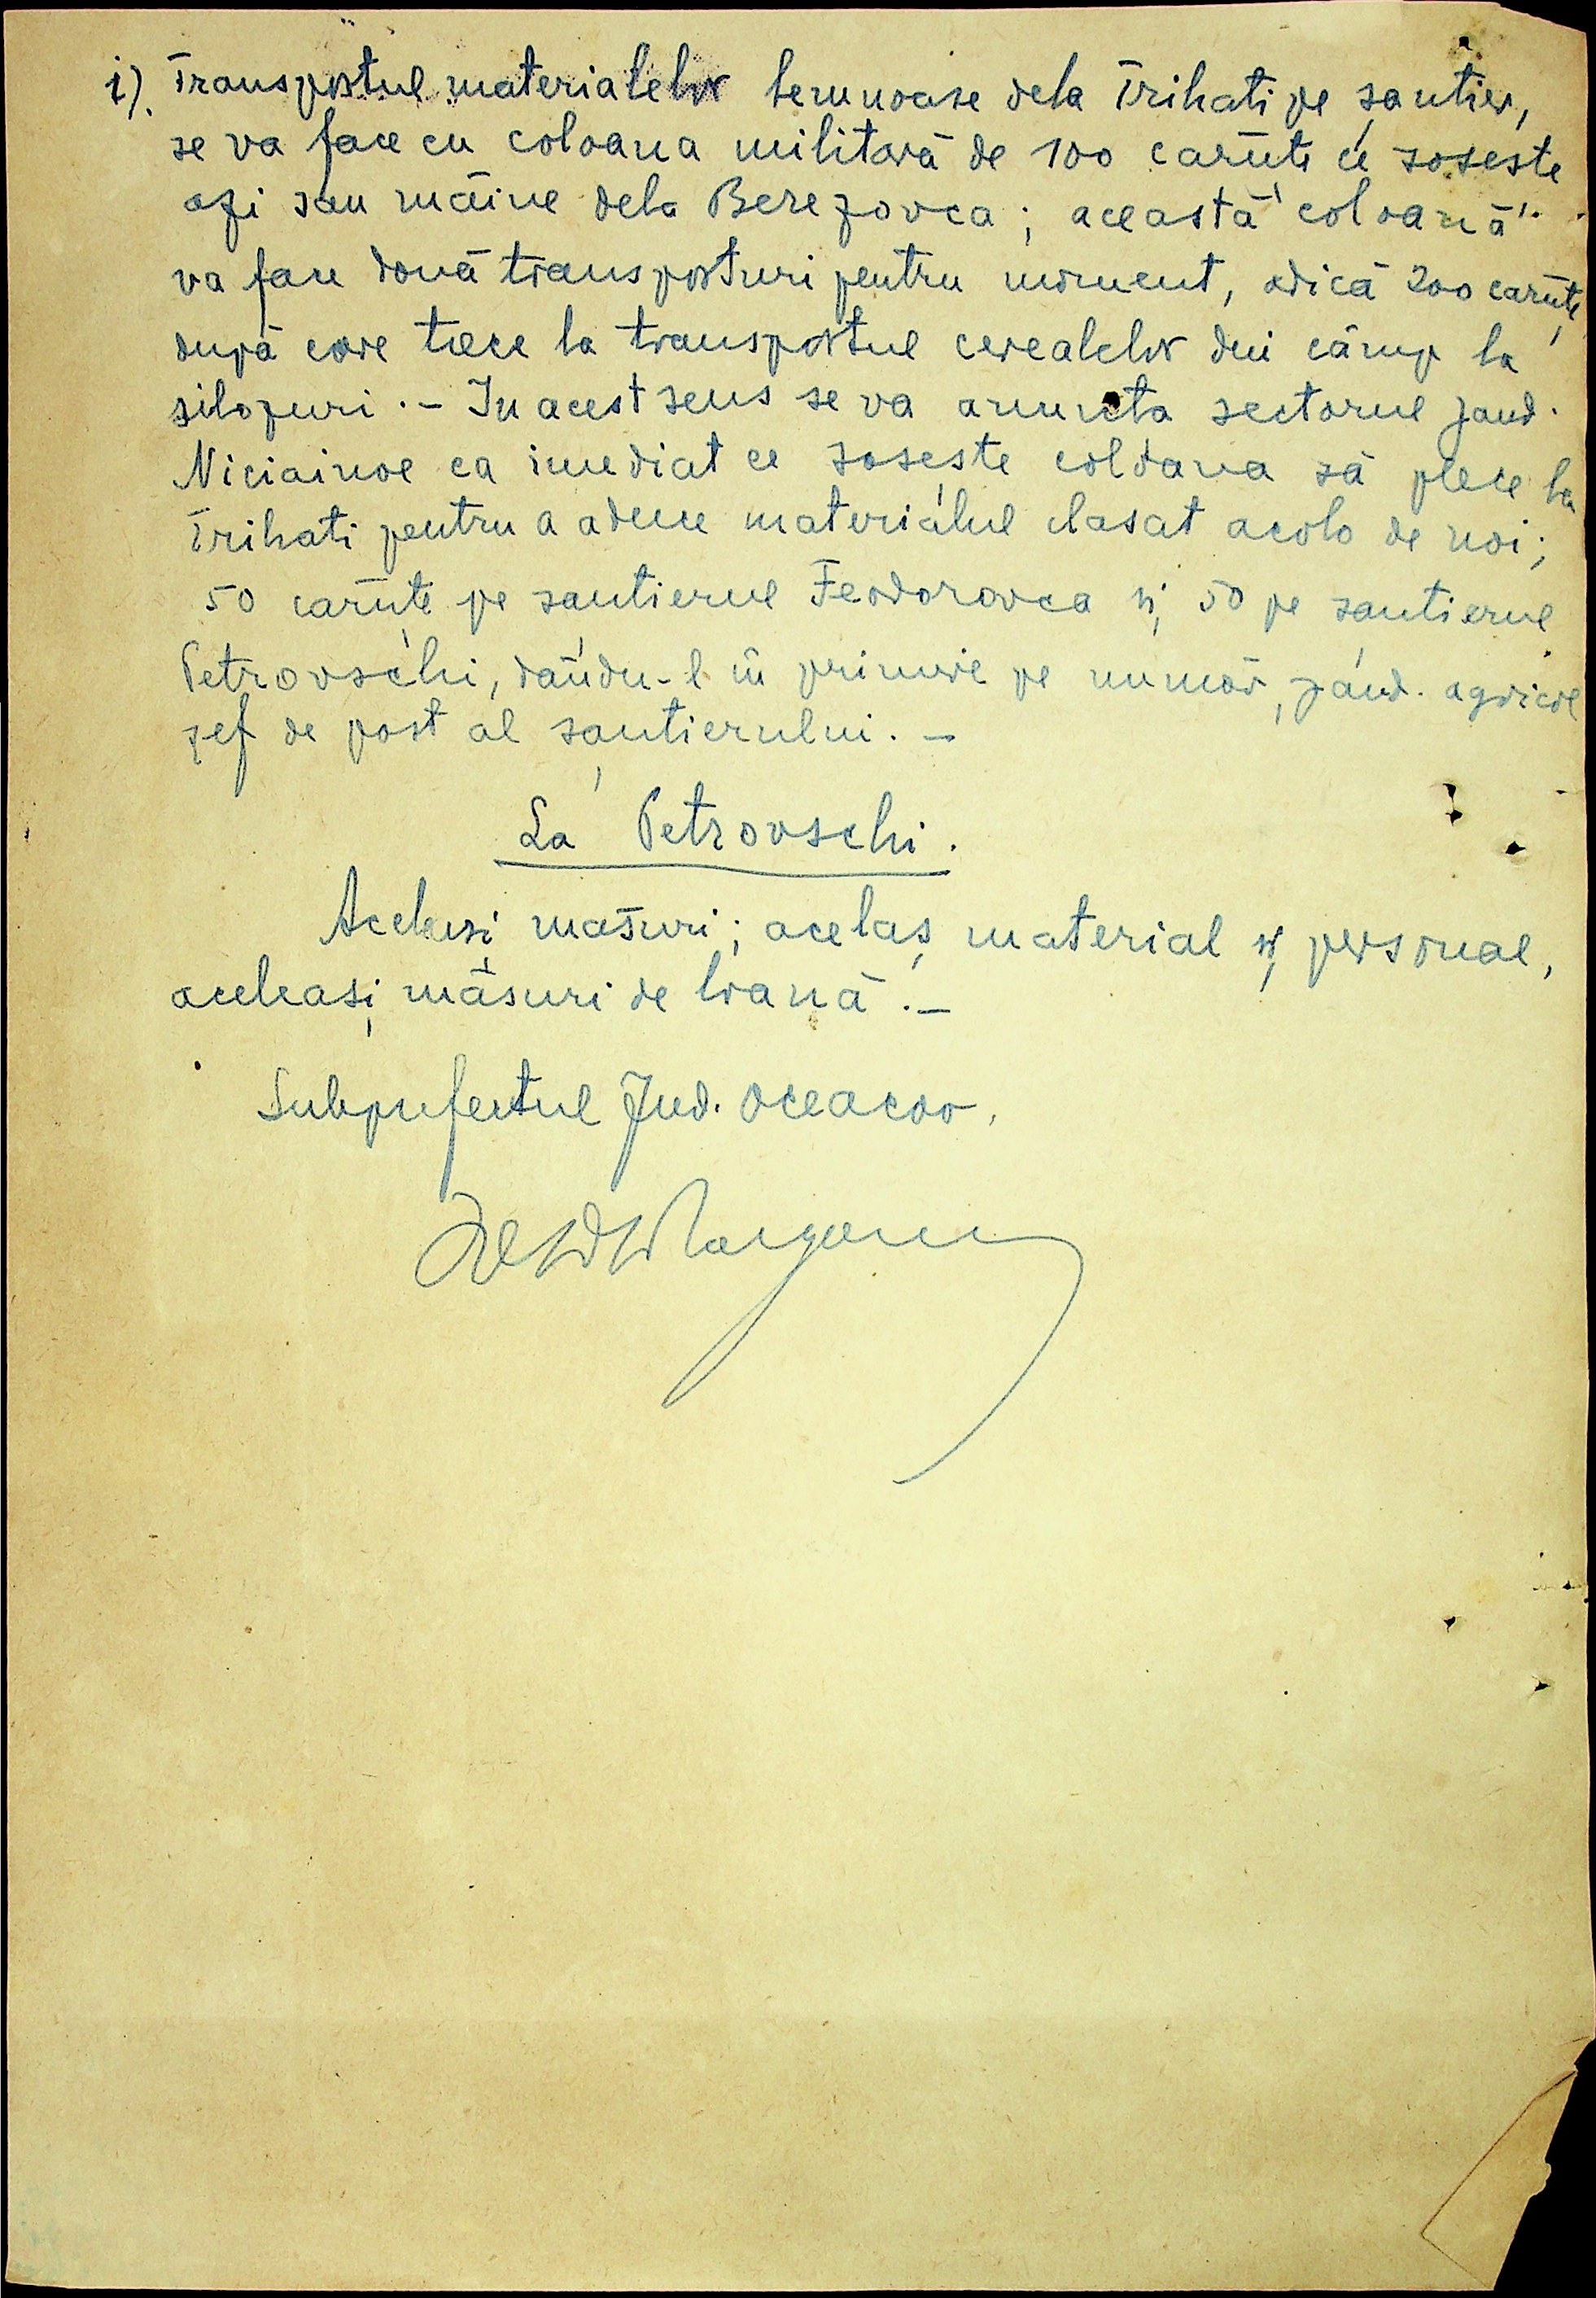 i). Transportul materialelor lemnoase dela Trihati pe șantier,
se va face cu coloana militară de 100 căruțe ce sosește
azi sau mâine dela Berezovca; această coloană
va face două transporturi pentru moment, adică 200 căruțe,
după care trece la transportul cerealelor din câmp la
silozuri. - In acest sens se va anunța sectorul jand.
ca imediat ce sosește coloana să plece la
Trihati pentru a aduce materialul lasat acolo de noi;
50 căruțe pe șantierul Feodorovca și 50 pe șantierul
Petrovschi, dându-l în primire pe număr, jand. agricol
șef de post al șantierului. -
La Petrovschi.
Aceleași măsuri; acelaș material și personal,
aceleași măsuri de hrană. -
Subprefectul Jud. Oceacov.